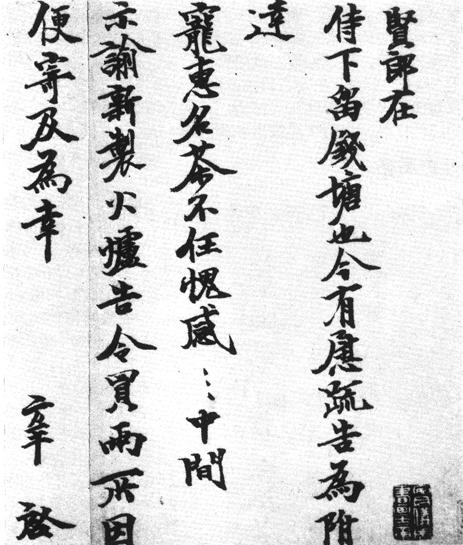 賢郎在
侍下留錢塘也今有慰疏告為附
達
寵惠名茶不任愧感〻中間
示諭新製火爐告令買兩所因
便寄及為幸 啟